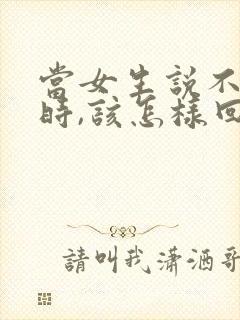 當女生說不
時,該怎樣回
請叫我瀟洒哥